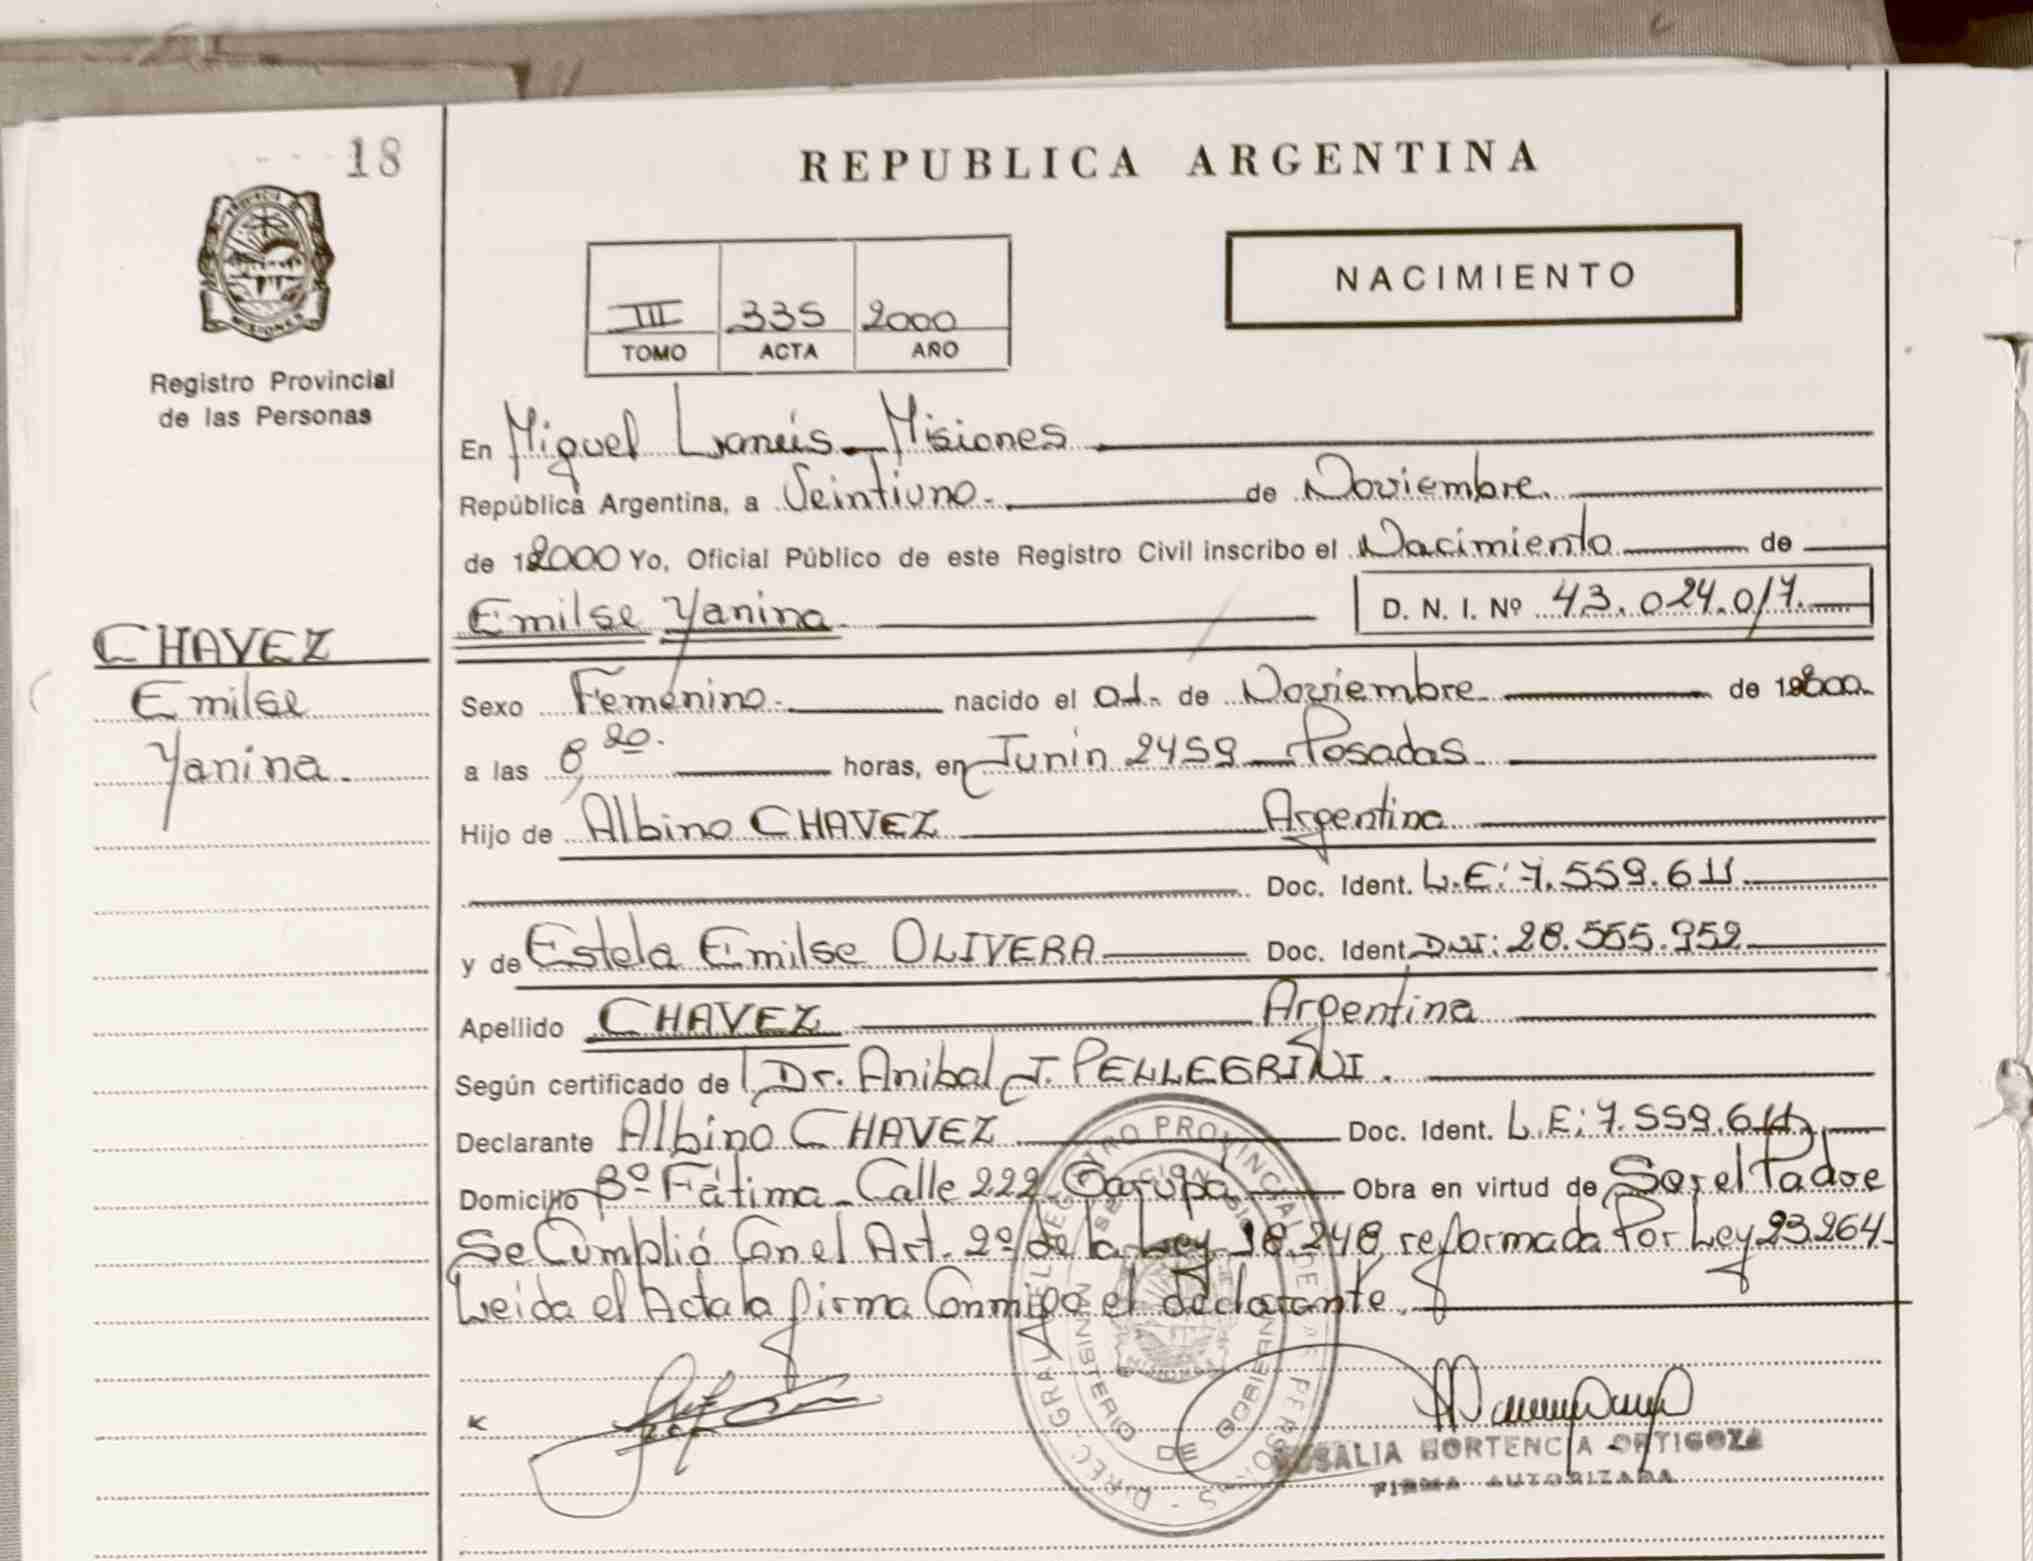 18
REPUBLICA ARGENTINA
NACIMIENTO
III 335 2000
TOMO ACTA AÑO
MISIONES
Registro Provincial
de las Personas
En Miguel Lanús - Misiones
República Argentina, a Veintiuno. de Noviembre.
de 2000 Yo, Oficial Público de este Registro Civil inscribo el Nacimiento de
Emilse Yanina D. N. I. Nº 43.024.017.
CHAVEZ
Emilse
Yanina.
Sexo Femenino. nacido el 01. de Noviembre de 2000.
a las 8,20. horas, en Junin 2459 - Posadas
Hijo de Albino CHAVEZ Argentina
Doc. Ident. L.E: 7.559.611
y de Estela Emilse OLIVERA Doc. Ident. DNI: 28.555.952
Apellido CHAVEZ Argentina
Según certificado de Dr. Anibal J. PELLEGRINI.
Declarante Albino CHAVEZ Doc. Ident. L.E: 7.559.611
Domicilio Bº Fátima - Calle 222 - Garupá Obra en virtud de Ser el Padre
Se Cumplió Con el Art. 2º de la Ley 18.248, reformada Por Ley 23.264.
Leida el Acta la firma Conmigo el declarante.
REGISTRO PROVINCIAL DE LAS PERSONAS - DIREC. GRAL.
MINISTERIO DE GOBIERNO
ROSALIA HORTENCIA ORTIGOZA
FIRMA AUTORIZADA